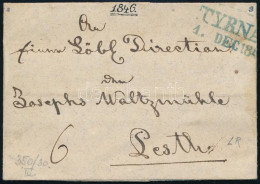 1846.
TYRNA
1. DEC:
An
Löbl. Direction
der
Josephs Waltzmühle
6
Pesth
350/30